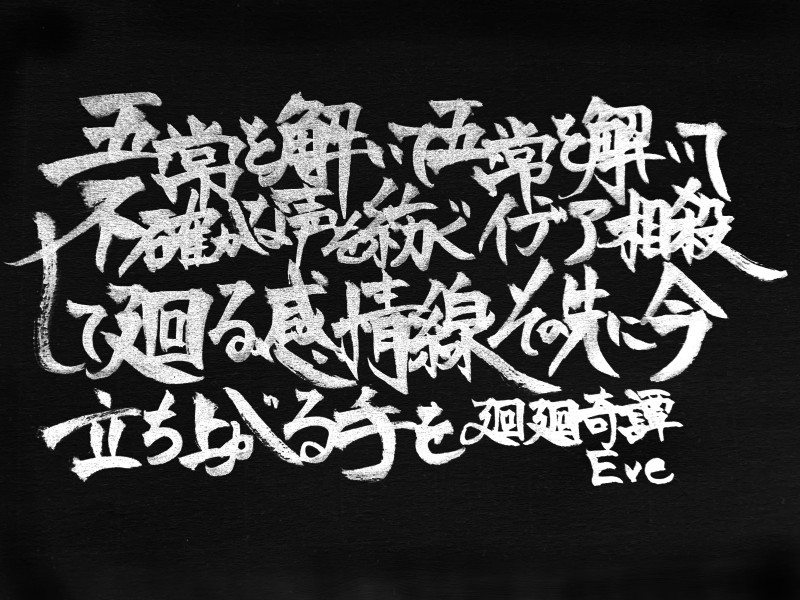 五常を解いて五常を解いて
不確かな声を紡ぐイデア相殺
して廻る感情線その先に今
立ち上がる手を 廻廻奇譚
Eve